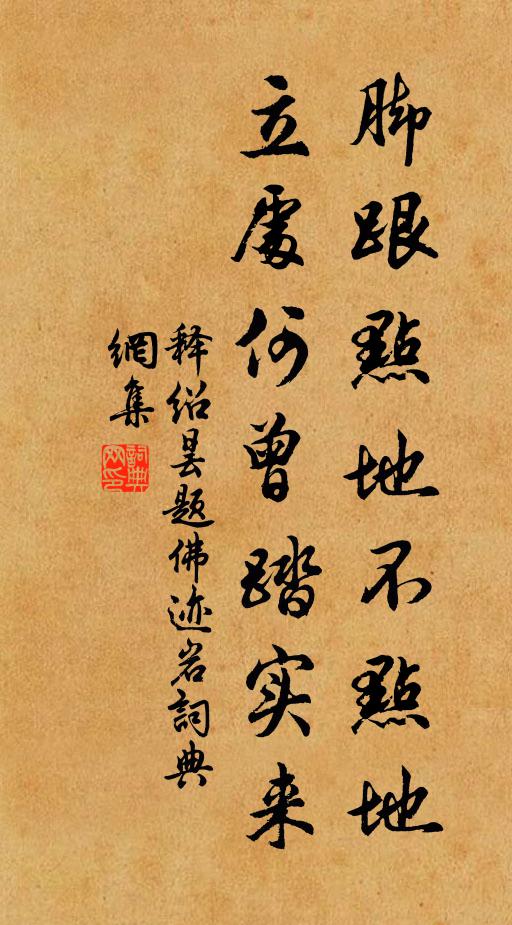 脚跟點地不點地
立處何曾踏实来
释绍昙题佛迹岩詞典
網集
詞典網印